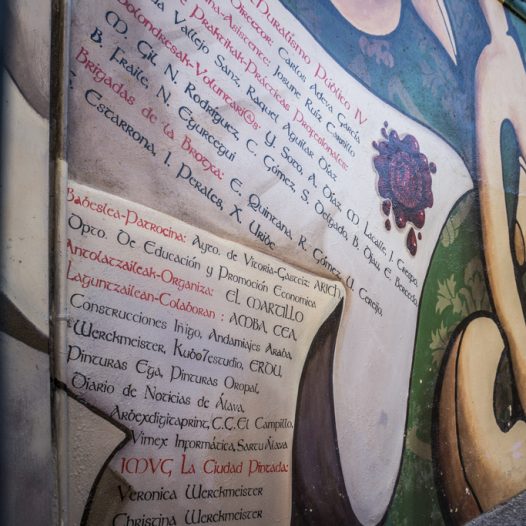 Muralismo Público IV
Director: Carlos Adeva García
-Asistence: Josune Ruiz Carrillo
Praktikak-Prácticas Profesionales:
Vallejo Sanz, Raquel Aguilar Díaz
-Voluntari@s:
Y. Soto, A. Díaz, M. Lacalle, J. Crespo,
M. Gil, N. Rodríguez, C. Gómez, S. Delgado, B. Djau, E. Borcosa,
B. Fraile, N. Egurcegui
Brigadas de la Brotxa: E. Quintana, R. Gómez, U. Cerejo,
Estarrona, I. Perales, X. Uribe.
Babeslea-Patrocina: Ayto. de Vitoria-Gasteiz: ARICH,
Dpto. De Educación y Promoción Economica
Antolatzaileak-Organiza: EL MARTILLO
Laguntzailean-Colaboran : AMBA, CEA,
Construcciones Iñigo, Andamiajes Araba,
Werckmeister, Kubo7estudio, ERDU,
Pinturas Ega, Pinturas Oropal,
Diario de Noticias de Álava,
Arbexdigitaprint, C.C. El Campillo,
Vimex Informática, Sartu Álava
IMVG La Ciudad Pintada:
Veronica Werckmeister
Christina Werckmeister